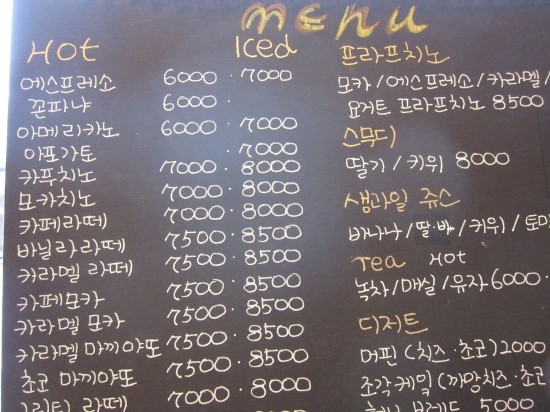 MENU
Hot Iced
에스프레소 6000 · 7000
꼰파냐 6000 ·
아메리카노 6000 · 7000
아포가토 · 7000
카푸치노 7000 · 8000
모카치노 7000 · 8000
카페라떼 7000 · 8000
바닐라라떼 7500 · 8500
카라멜 라떼 7500 · 8500
카페모카 7500 · 8500
카라멜 모카 7500 · 8500
카라멜 마끼야또 7500 · 8500
초코 마끼야또 7500 · 8500
라떼 7000 · 8000
프라프치노
모카/에스프레소/카라멜/
요거트 프라프치노 8500
스무디
딸기/키위 8000
생과일 쥬스
바나나/딸·바/키위/토마
Tea Hot
녹차/매실/유자 6000 ·
디저트
머핀 (치즈·초코) 2000
조각케잌 (까망치즈·초코
5000